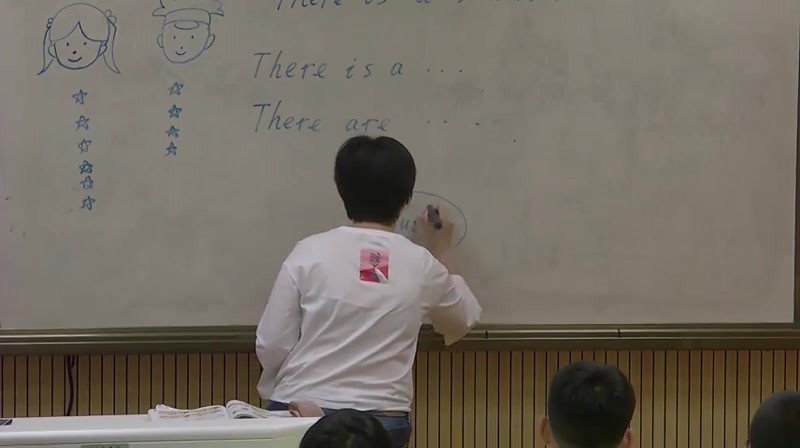 There is a
There is a ...
There are ....